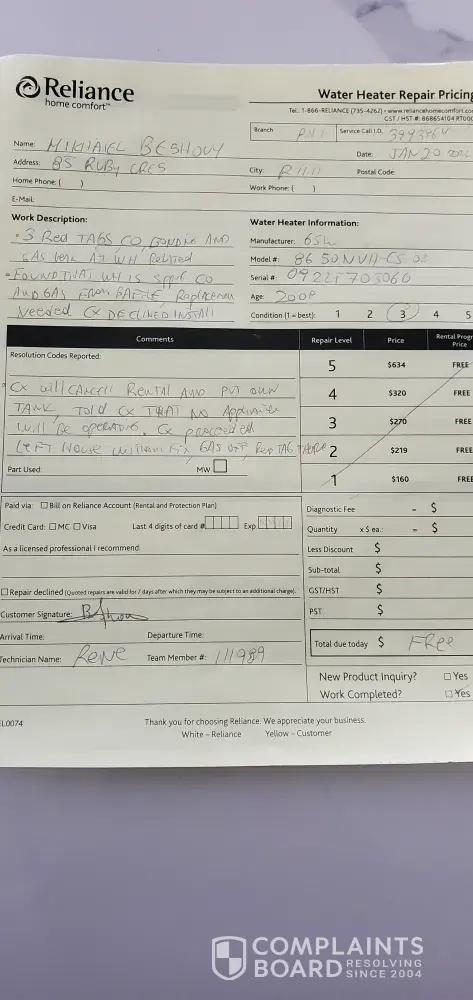 Reliance
home comfort™
Water Heater Repair Pricing
Tel.: 1-866-RELIANCE (735-4262) • www.reliancehomecomfort.co
GST / HST #: 868654104 RT000
Branch
Service Call I.D.
Name: MIKHAIEL BESHOUY
Date: JAN 20
Address: 85 RUBY CRES
City:
Postal Code:
Home Phone: ( )
Work Phone: ( )
E-Mail:
Work Description:
Water Heater Information:
• 3 Red TAGS CO, BONDING AND
Manufacturer: GSW
GAS leak AT WH Related
Model #:
• FOUND THAT WH IS CO
Serial #:
AND GAS FROM Replacemen
Age: 2009
Needed CX DECLINED INSTALL
Condition (1 = best): 1 2 3 4 5
Comments
Repair Level
Price
Rental Progr
Price
Resolution Codes Reported:
5 $634 FREE
• CX will CANCELL RENTAL AND PUT OWN
4 $320 FREE
TANK, TOLD CX THAT NO Appliances
3 $270 FREE
Will Be OPERATING. CX proceeded
LEFT HOUSE WITH GAS OFF, RED TAG THERE
2 $219 FREE
Part Used:
MW
1 $160 FREE
Paid via: Bill on Reliance Account (Rental and Protection Plan)
Diagnostic Fee - $
Credit Card: MC Visa Last 4 digits of card # Exp.
Quantity x $ ea.: = $
As a licensed professional I recommend:
Less Discount $
Sub-total $
Repair declined (Quoted repairs are valid for 7 days after which they may be subject to an additional charge).
GST/HST $
Customer Signature:
PST $
Arrival Time: Departure Time:
Total due today $ FREE
Technician Name: Rene Team Member #: 111989
New Product Inquiry? Yes
Work Completed? Yes
EL0074
Thank you for choosing Reliance. We appreciate your business.
White – Reliance Yellow – Customer
COMPLAINTS
BOARD RESOLVING
SINCE 2004